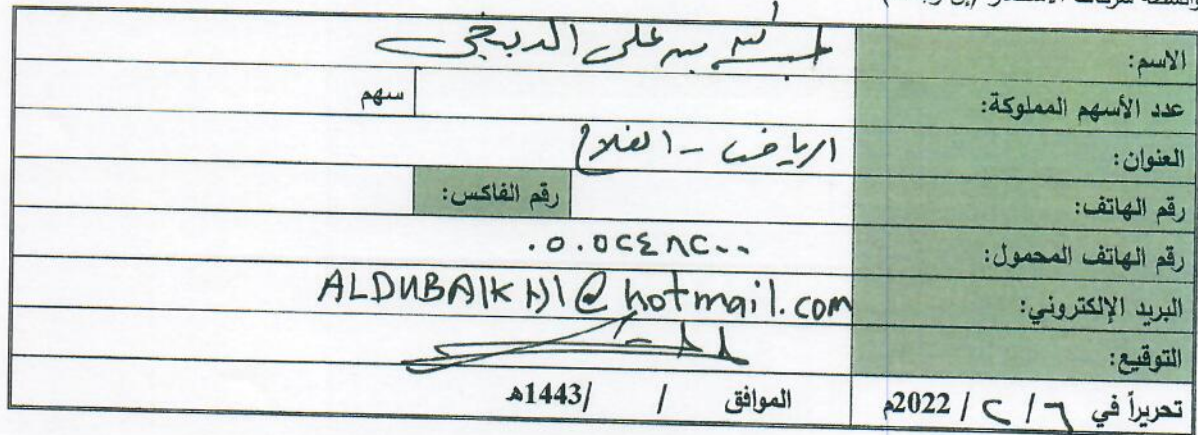 الاسم: عبدالله بن علي الدبيخي
عدد الأسهم المملوكة: سهم
العنوان: الرياض - الفلاح
رقم الهاتف: رقم الفاكس:
رقم الهاتف المحمول: ٠٥٠٥٢٤٨٢٠٠
البريد الإلكتروني: ALDUBAIKHI@hotmail.com
التوقيع:
تحريراً في ٦ / ٢ / 2022م الموافق / /1443هـ